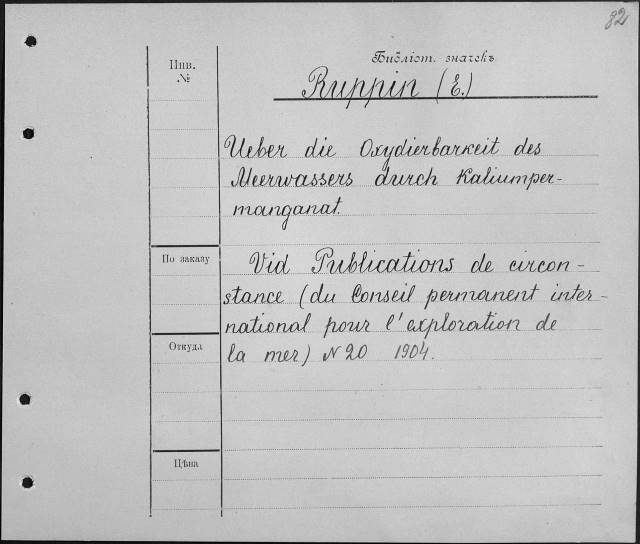 82
Инв.
№
Библіот. значекъ
Ruppin (E.)
Ueber die Oxydierbarkeit des
Meerwassers durch Kaliumper-
manganat.
По заказу
Vid Publications de circon-
stance (du Conseil permanent inter-
national pour l'exploration de
la mer) N 20 1904.
Откуда
Цѣна